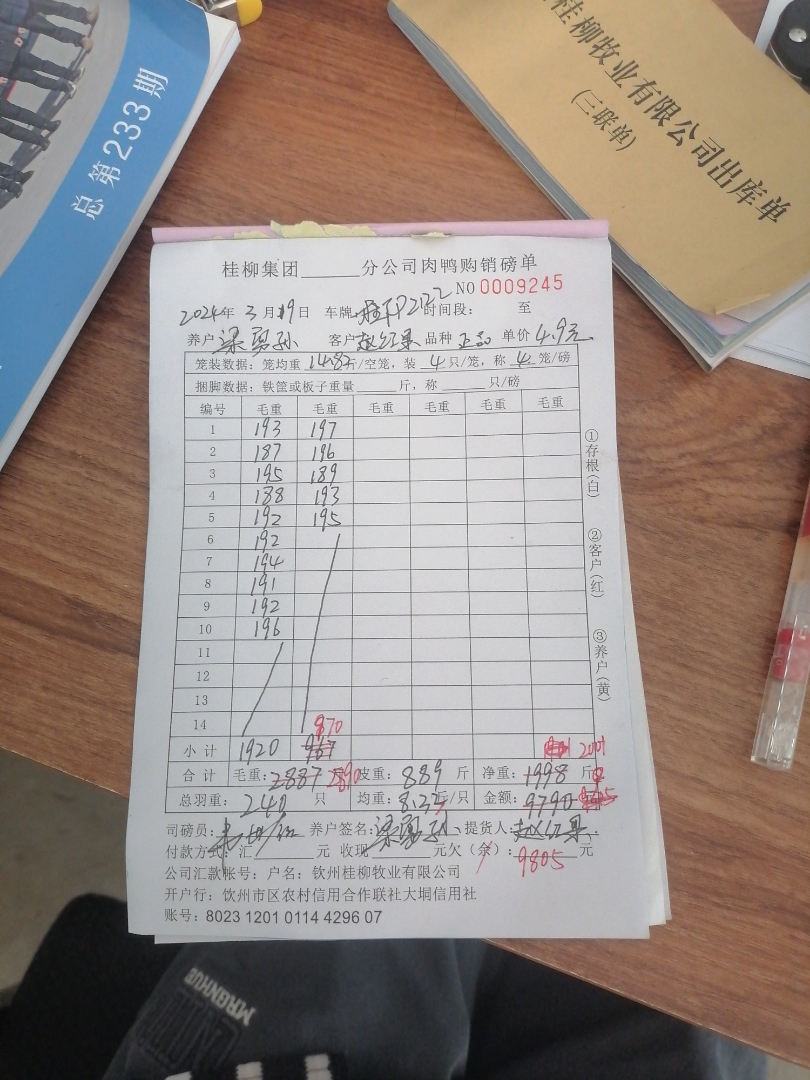 总 第233期
桂柳牧业有限公司出库单
(三联单)
桂柳集团______分公司肉鸭购销磅单
NO 0009245
2024年 3月19日 车牌: 时间段: 至
养户 梁勇孙 客户 品种 正品 单价 4.9元
笼装数据:笼均重 14.82斤/空笼,装 4 只/笼,称 4 笼/磅
捆脚数据:铁筐或板子重量______斤,称______只/磅
编号 毛重 毛重 毛重 毛重 毛重 毛重
1 193 197
2 187 196
3 195 189
4 188 193
5 192 195
6 192
7 194
8 191
9 192
10 196
11
12
13
14
小计 1920 967 970 2001
合计 毛重:2887 2890 斤 皮重:889 斤 净重:1998 斤
总羽重:240 只 均重:8.32斤/只 金额:9790
司磅员: 养户签名:梁勇孙 提货人:
付款方式:汇______元 收现______元欠(余):9805元
公司汇款账号:户名:钦州桂柳牧业有限公司
开户行:钦州市区农村信用合作联社大垌信用社
账号:8023 1201 0114 4296 07
①存根(白)
②客户(红)
③养户(黄)